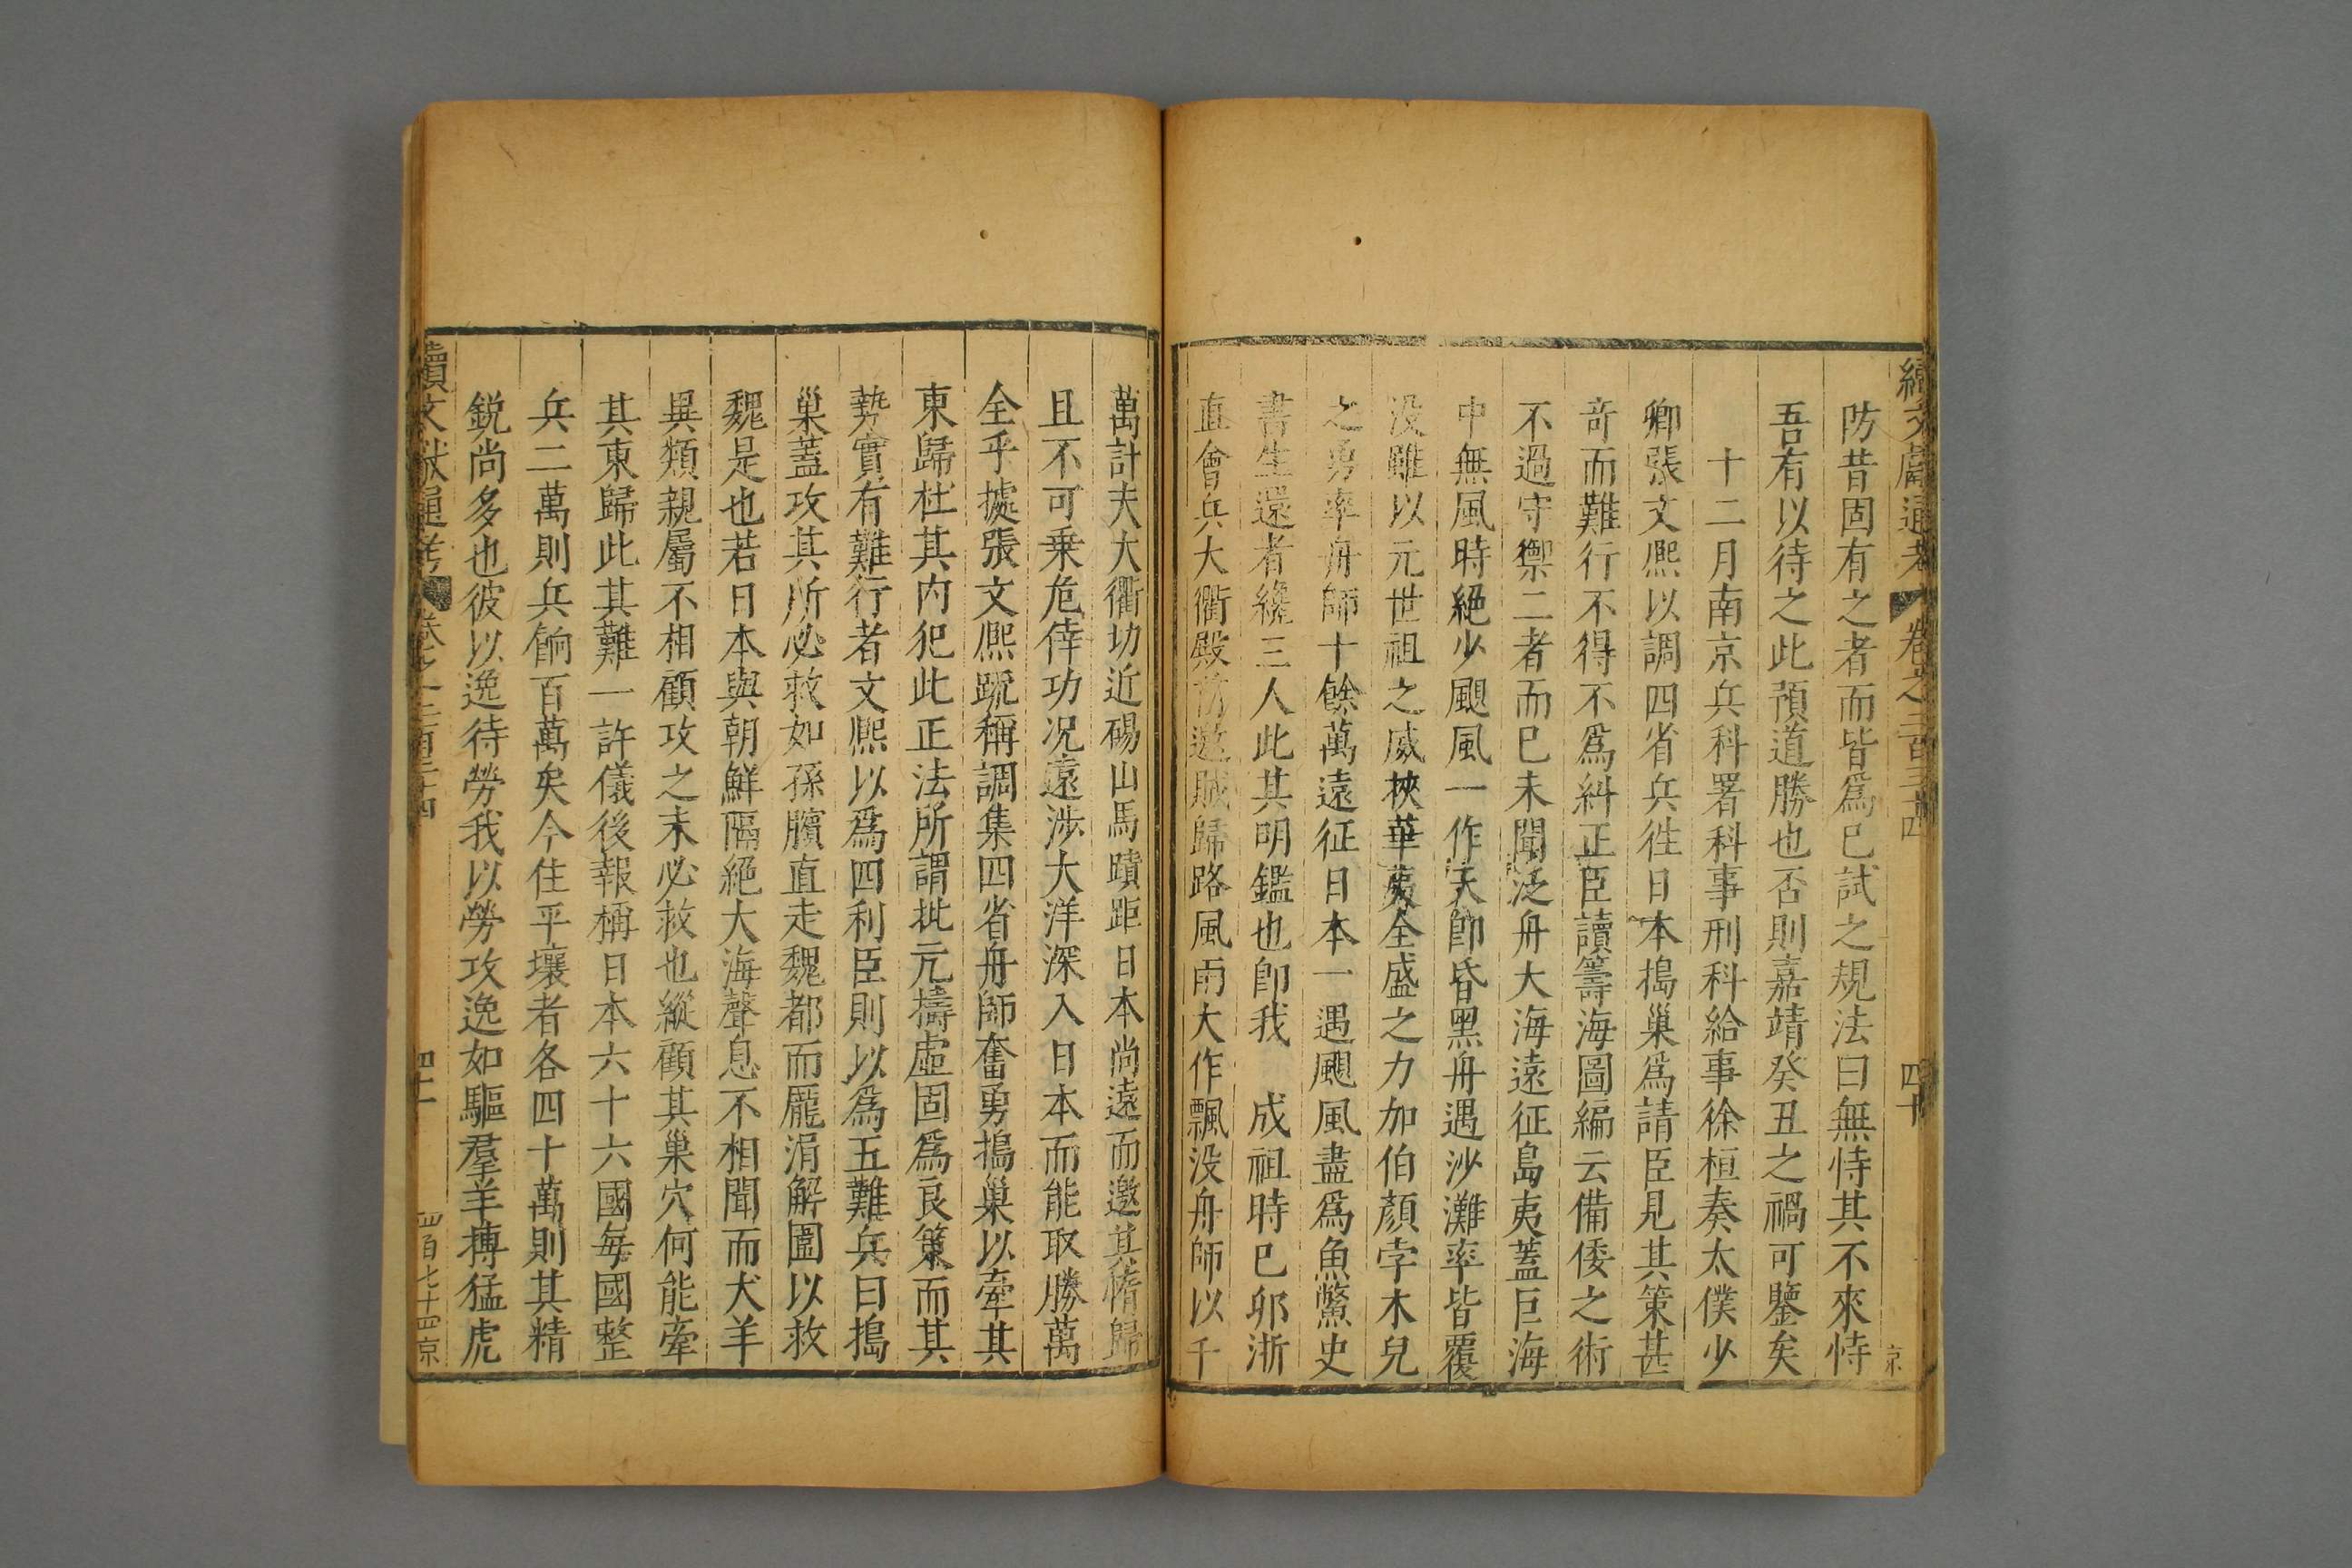 續文獻通考 卷之二百三十四 四十 京
防昔固有之者而皆爲已試之規法曰無恃其不來恃
吾有以待之此預道勝也否則嘉靖癸丑之禍可鑒矣
十二月南京兵科署科事刑科給事徐桓奏太僕少
卿張文熈以調四省兵徃日本搗巢爲請臣見其策甚
竒而難行不得不爲糾正臣讀籌海圖編云備倭之術
不過守禦二者而已未聞泛舟大海遠征島夷蓋巨海
中無風時絕少颶風一作天卽昏黑舟遇沙灘率皆覆
没雖以元世祖之威挾華夷全盛之力加伯顏孛木兒
之勇率舟師十餘萬遠征日本一遇颶風盡爲魚鱉史
書生還者纔三人此其明鑑也卽我 成祖時已夘浙
直會兵大衢殿前遮賊歸路風雨大作飄没舟師以千
萬計夫大衢功近碭山馬蹟距日本尚遠而邀其惰歸
且不可乗危倖功况遠涉大洋深入日本而能取勝萬
全乎據張文熈䟽稱調集四省舟師奮勇搗巢以牽其
東歸杜其内犯此正法所謂批亢擣虛固爲良策而其
勢實有難行者文熈以爲四利臣則以爲五難兵曰搗
巢蓋攻其所必救如孫臏直走魏都而龎涓解圍以救
魏是也若日本與朝鮮隔絕大海聲息不相聞而犬羊
異類親屬不相顧攻之未必救也縱顧其巢穴何能牽
其東歸此其難一許儀後報稱日本六十六國每國整
兵二萬則兵餉百萬矣今住平壤者各四十萬則其精
銳尚多也彼以逸待勞我以勞攻逸如驅羣羊搏猛虎
續文獻通考 卷之二百三十四 四十一 四百七十四京